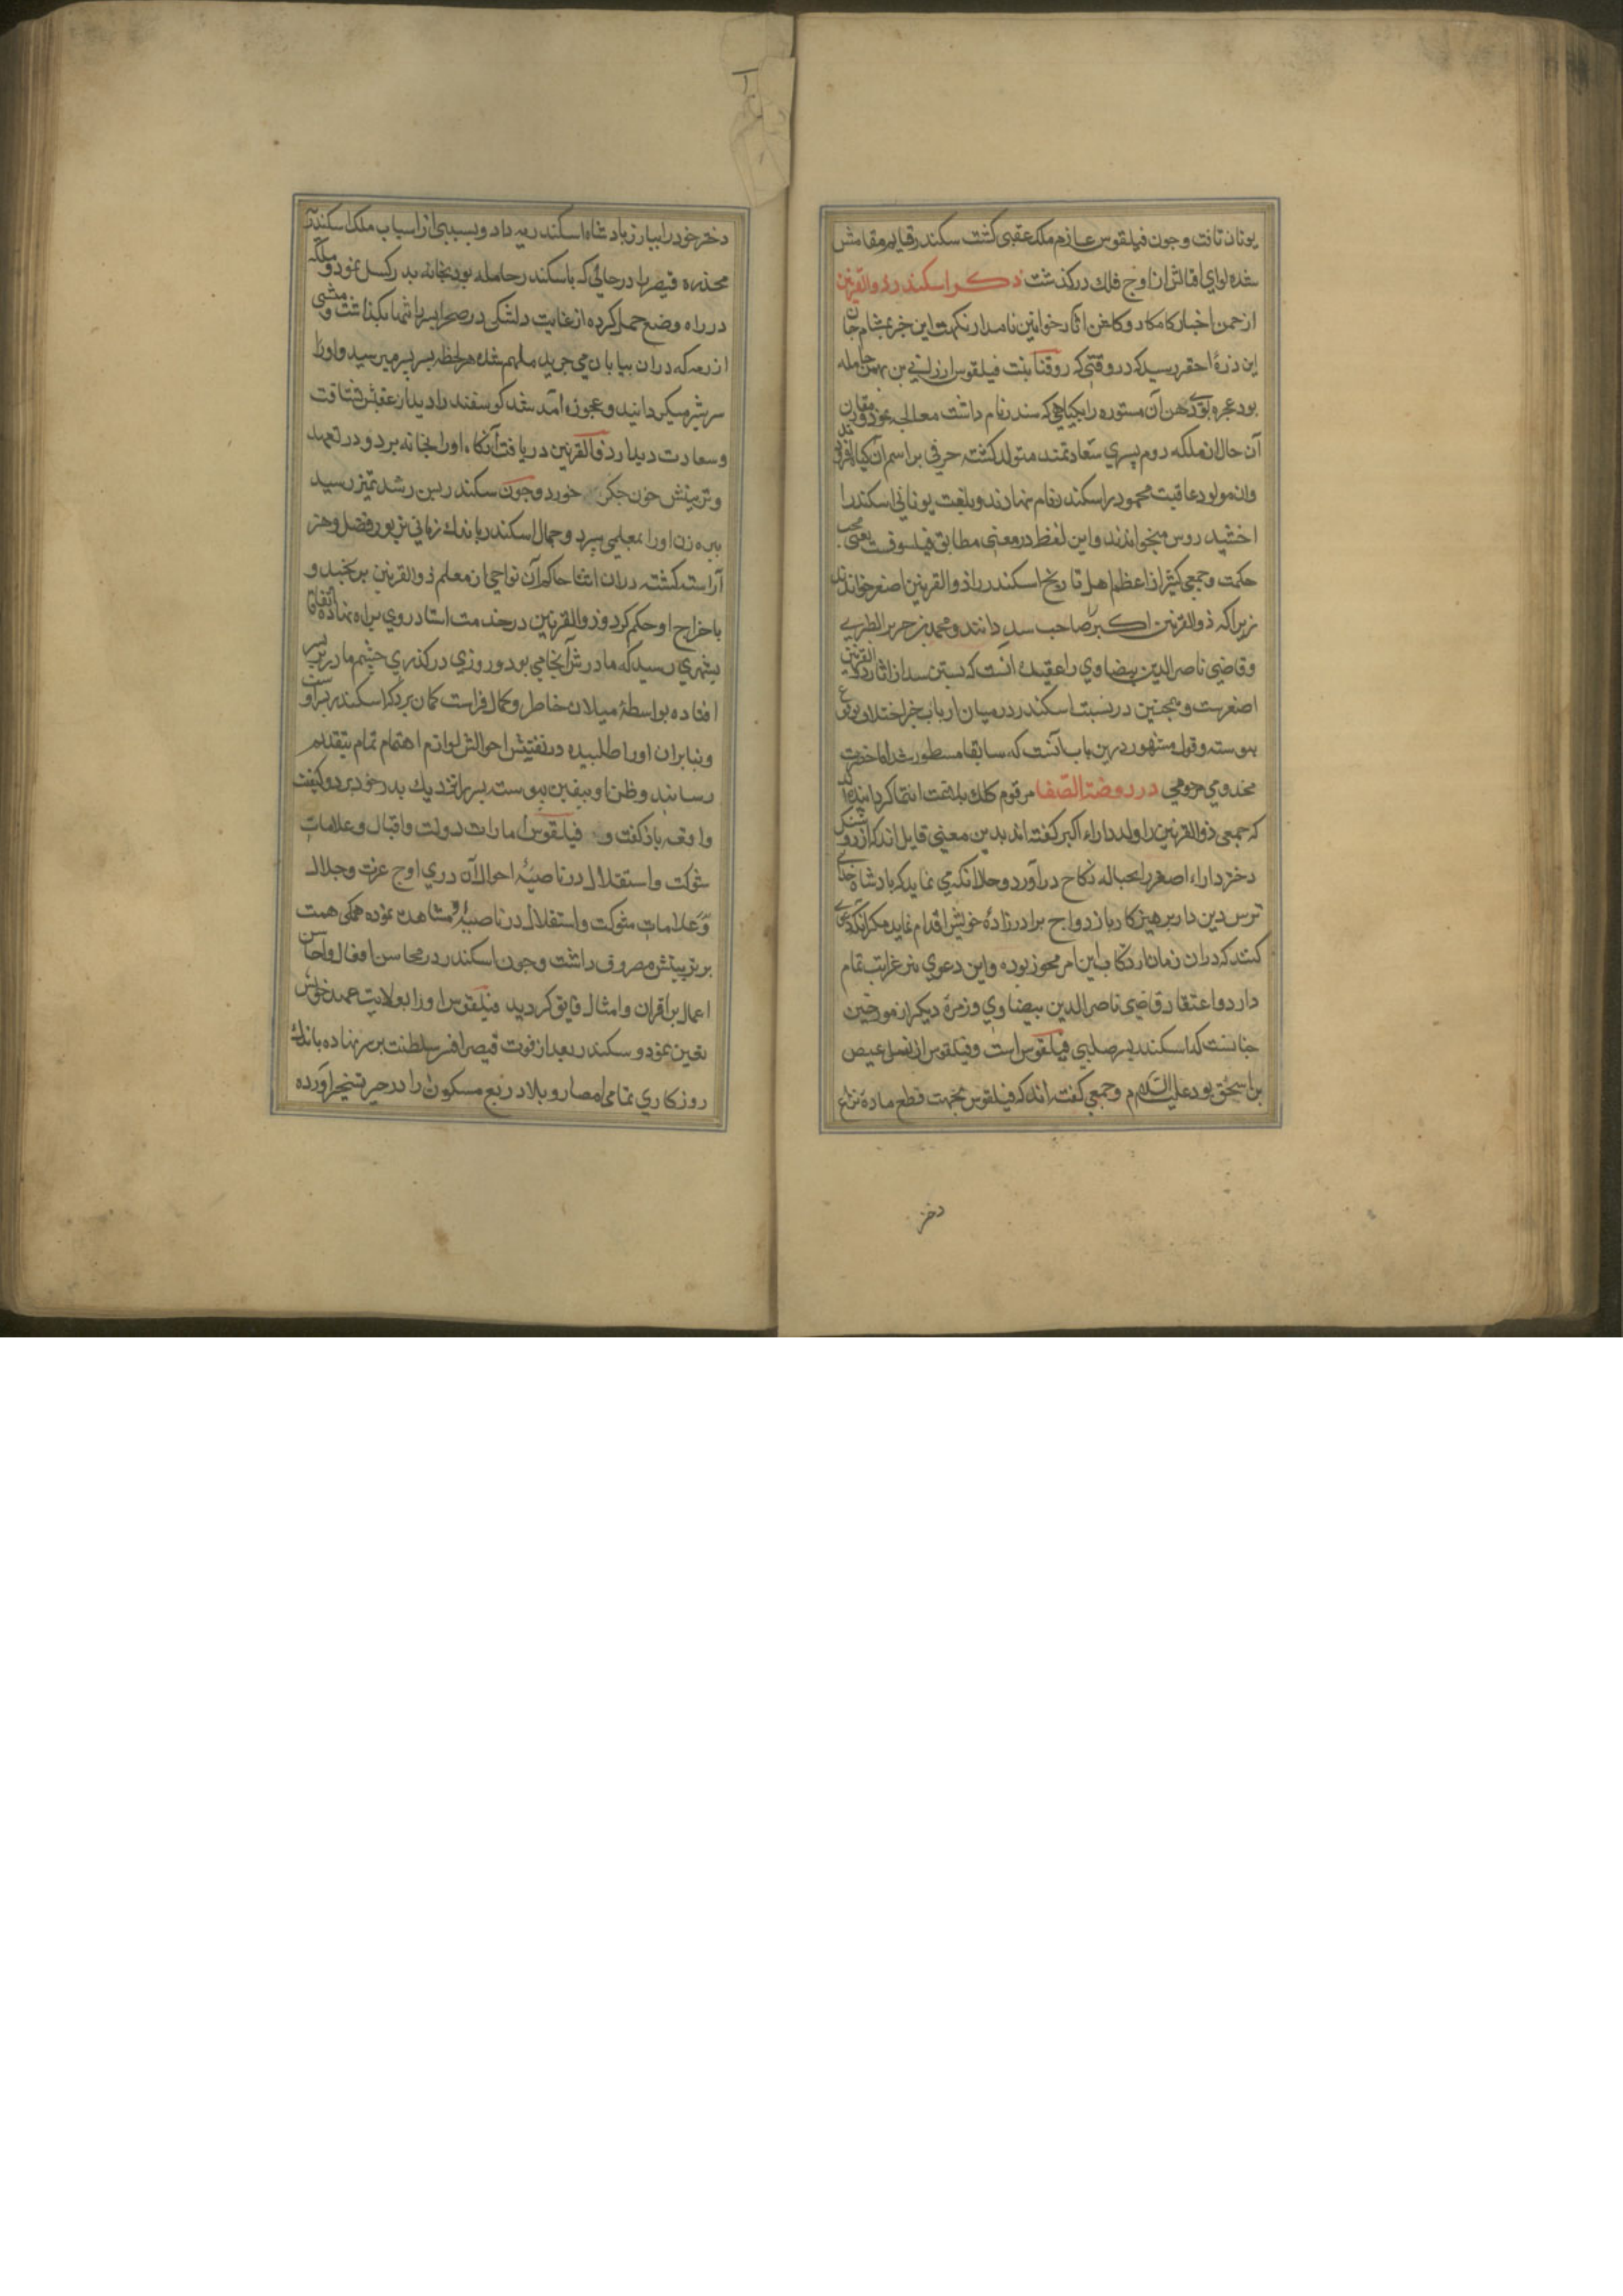 یونان تافت و جون فیلقوس عازم ملک عقبی کشت سکندر قایم مقامش
شده لوای اقبالش از اوج فلک درکذشت ذکر اسکندر ذو القرنین
از جمن اخبار کامکار و کلشن اثار خواتین نامدار نکهت این خبر بمشام جان
این ذرهٔ احقر رسید که در وقتی که روقنا بنت فیلقوس از بن بهمن حامله
بود عجره بوی دهن آن مستوره را بکیاهی که سندر نام داشت معالجه نمود و مقارن
آن حال از ملکه روم پسری سعادتمند متولد کشته حرفی بر اسم آن کیاه افزودند
وان مولود عاقبت محمود را سکندر نام نهادند و بلغت یونانی اسکندر را
اخشید روس میخواندند و این لفظ در معنی مطابق فیلسوفست یعنی محب
حکمت و جمعی کثیر از اعظم اهل تاریخ اسکندر را ذو القرنین اصغر خوانده‌اند
زیرا که ذو القرنین اکبر را صاحب سد دانند و محمد بن جریر الطبری
و قاضی ناصر الدین بیضاوی را عقیده انست که بستن سد از اثار ذو القرنین
اصغرست و همجنین در نسبت اسکندر در میان ارباب خبر اختلاف بوقوع
بیوسته و قول مشهور درین باب آنست که سابقا مسطور شد اما حضرت
مخدومی مرحومی در روضة الصفا مرقوم کلک بلاغت انتما کردانیده‌اند
که جمعی ذو القرنین را ولد داراء اکبر کفته اند بدین معنی قایل اند که از رو
دختر داراء اصغر را بحباله نکاح درآورد و حلانکه می نماید که بادشاه خدای
ترس دین دار برهیزکار بازدواج برادرزادهٔ خویش اقدام نماید مکر آنکه دعوی
کنند که دران زمان ارتکاب این امر مجوز بوده و این دعوی نیز غرابت تمام
دارد و اعتقاد قاضی ناصر الدین بیضاوی و زمرهٔ دیکر از مورخین
جنانست که اسکندر بسر صلبی فیلقوس است و فیلقوس از نسل عیص
بن اسحق بود علیه السلام و جمعی کفته اند که فیلقوس بجهت قطع مادهٔ نزاع
دختر
دختر خود را ببادشاه اسکندریه داد و بسببی از اسباب ملک اسکندریه
مخدره قیصر را در حالتی که باسکندر حامله بود بخانه بدر کسیل نمود و ملکه
در راه وضع حمل کرده از غایت دلتنکی در صحرا بسر را تنها بکذاشت و میشی
از رمه که دران بیابان می جرید ملهم شده هر لحظه بسر بسر میرسید و او را
سر شیر میکردانید و عجوزه آمد شد کوسفند را دید از عقبش شتافت
و سعادت دیدار ذو القرنین دریافت آنکاه او را بخانه برد و در تعهد
و تربیتش خون جکر خورد و جون سکندر بسن رشد تمیز رسید
بیره زن او را بمعلمی سپرد و جمال اسکندر باندک زمانی بزیور فضل و هنر
آراسته کشته دران اثنا حاکم آن نواحی از معلم ذو القرنین برنجید و
باخراج او حکم کرد و ذو القرنین در خدمت استاد روی براه نهاده اتفاقا
بشهری رسید که مادرش آنجا می بود و روزی در کذری جشم مادر بر پسر
افتاده بواسطهٔ میلان خاطر و کمال فراست کمان برد که اسکندر پسر اوست
و بنابران او را طلبیده در تفتیش احوالش لوازم اهتمام تمام بتقدیم
رسانید و ظن او بیقین بیوست بسر را نزدیک بدر خود برد و کیفیت
واقعه باز کفت و فیلقوس امارات دولت و اقبال و علامات
شوکت و استقلال در ناصیهٔ احوال آن دری اوج عزت و جلال
و علامات شوکت و استقلال در ناصیهٔ او مشاهده نموده همکی همت
بر تربیتش مصروف داشت و جون اسکندر در محاسن افعال و احاسن
اعمال بر اقران و امثال فایق کردید فیلقوس او را بولایت عهد خویش
تعیین نمود و سکندر بعد از فوت قیصر افسر سلطنت بر سر نهاده باندک
روزکاری تمامی امصار و بلاد ربع مسکون را در حیز تسخیر آورده